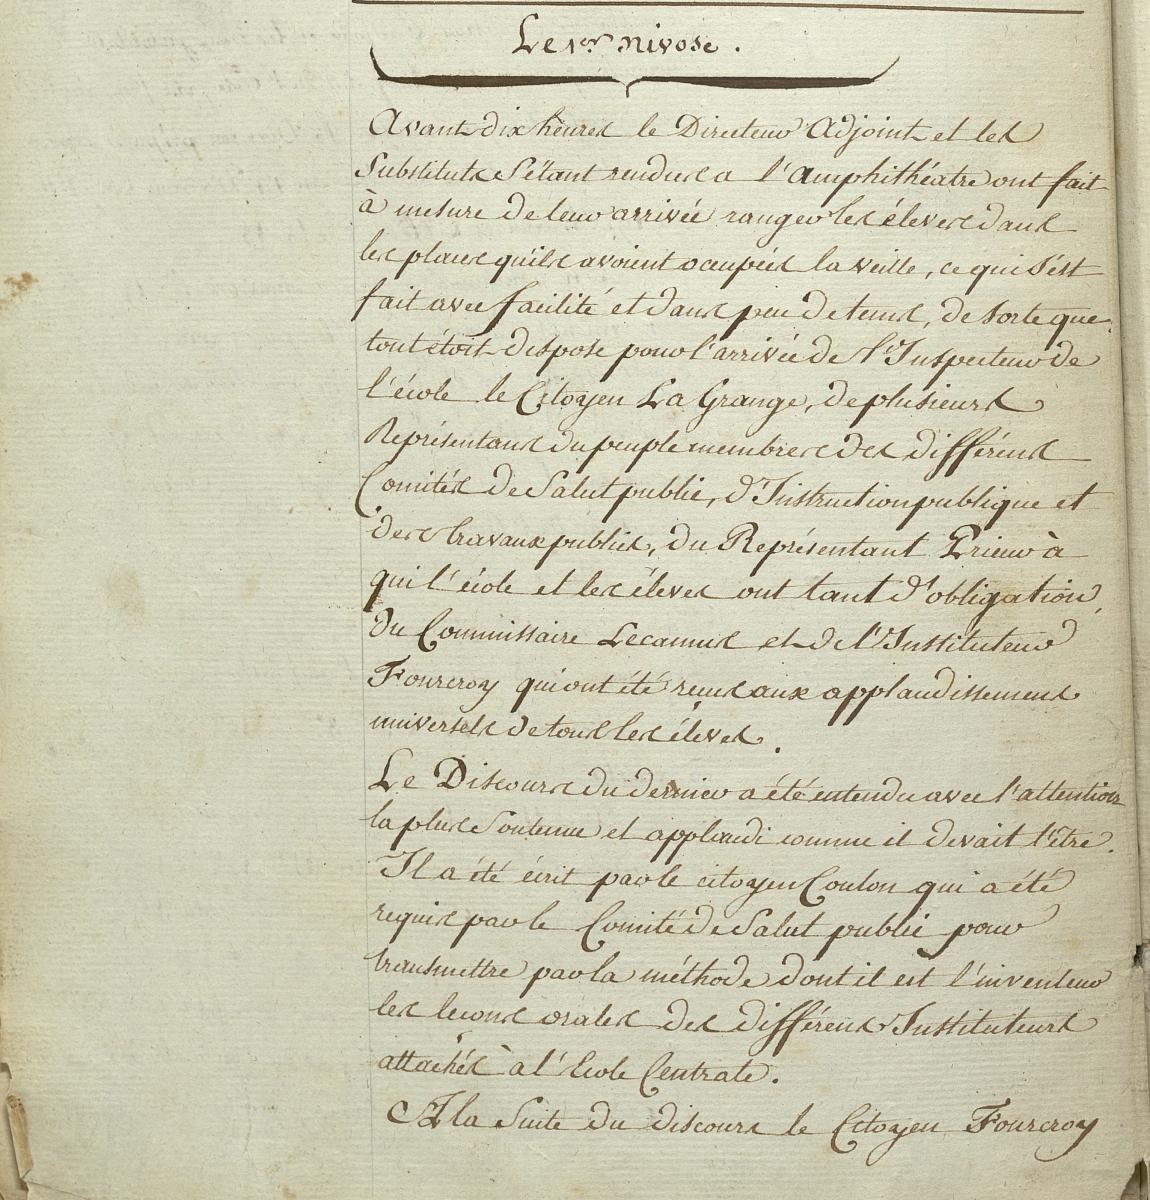 Le 1er nivose.
Avant dix heures le Directeur Adjoint et les
Substituts s'étant rendus a l'amphithéatre ont fait
à mesure de leur arrivée ranger les éleves dans
les places qu'ils avoient occupées la veille, ce qui s'est
fait avec facilité et dans peu de tems, de sorte que
tout étoit disposé pour l'arrivée de l'Inspecteur de
l'école le Citoyen La Grange, de plusieurs
Représentans du peuple membres des différens
Comités de Salut public, d'Instruction publique et
des travaux publics, du Représentant Prieur à
qui l'école et les éleves ont tant d'obligation,
du Commissaire Lecamus et de l'Instituteur
Fourcroy qui ont été reçus aux applaudissemens
universels de tous les éleves.
Le Discours du dernier a été entendu avec l'attention
la plus soutenue et applaudi comme il devait l'être.
Il a été écrit par le citoyen Coulon qui a été
requis par le Comité de Salut public pour
transmettre par la méthode dont il est l'inventeur
les leçons orales des différens Instituteurs
attachés à l'école Centrale.
A la Suite du discours le Citoyen Fourcroy